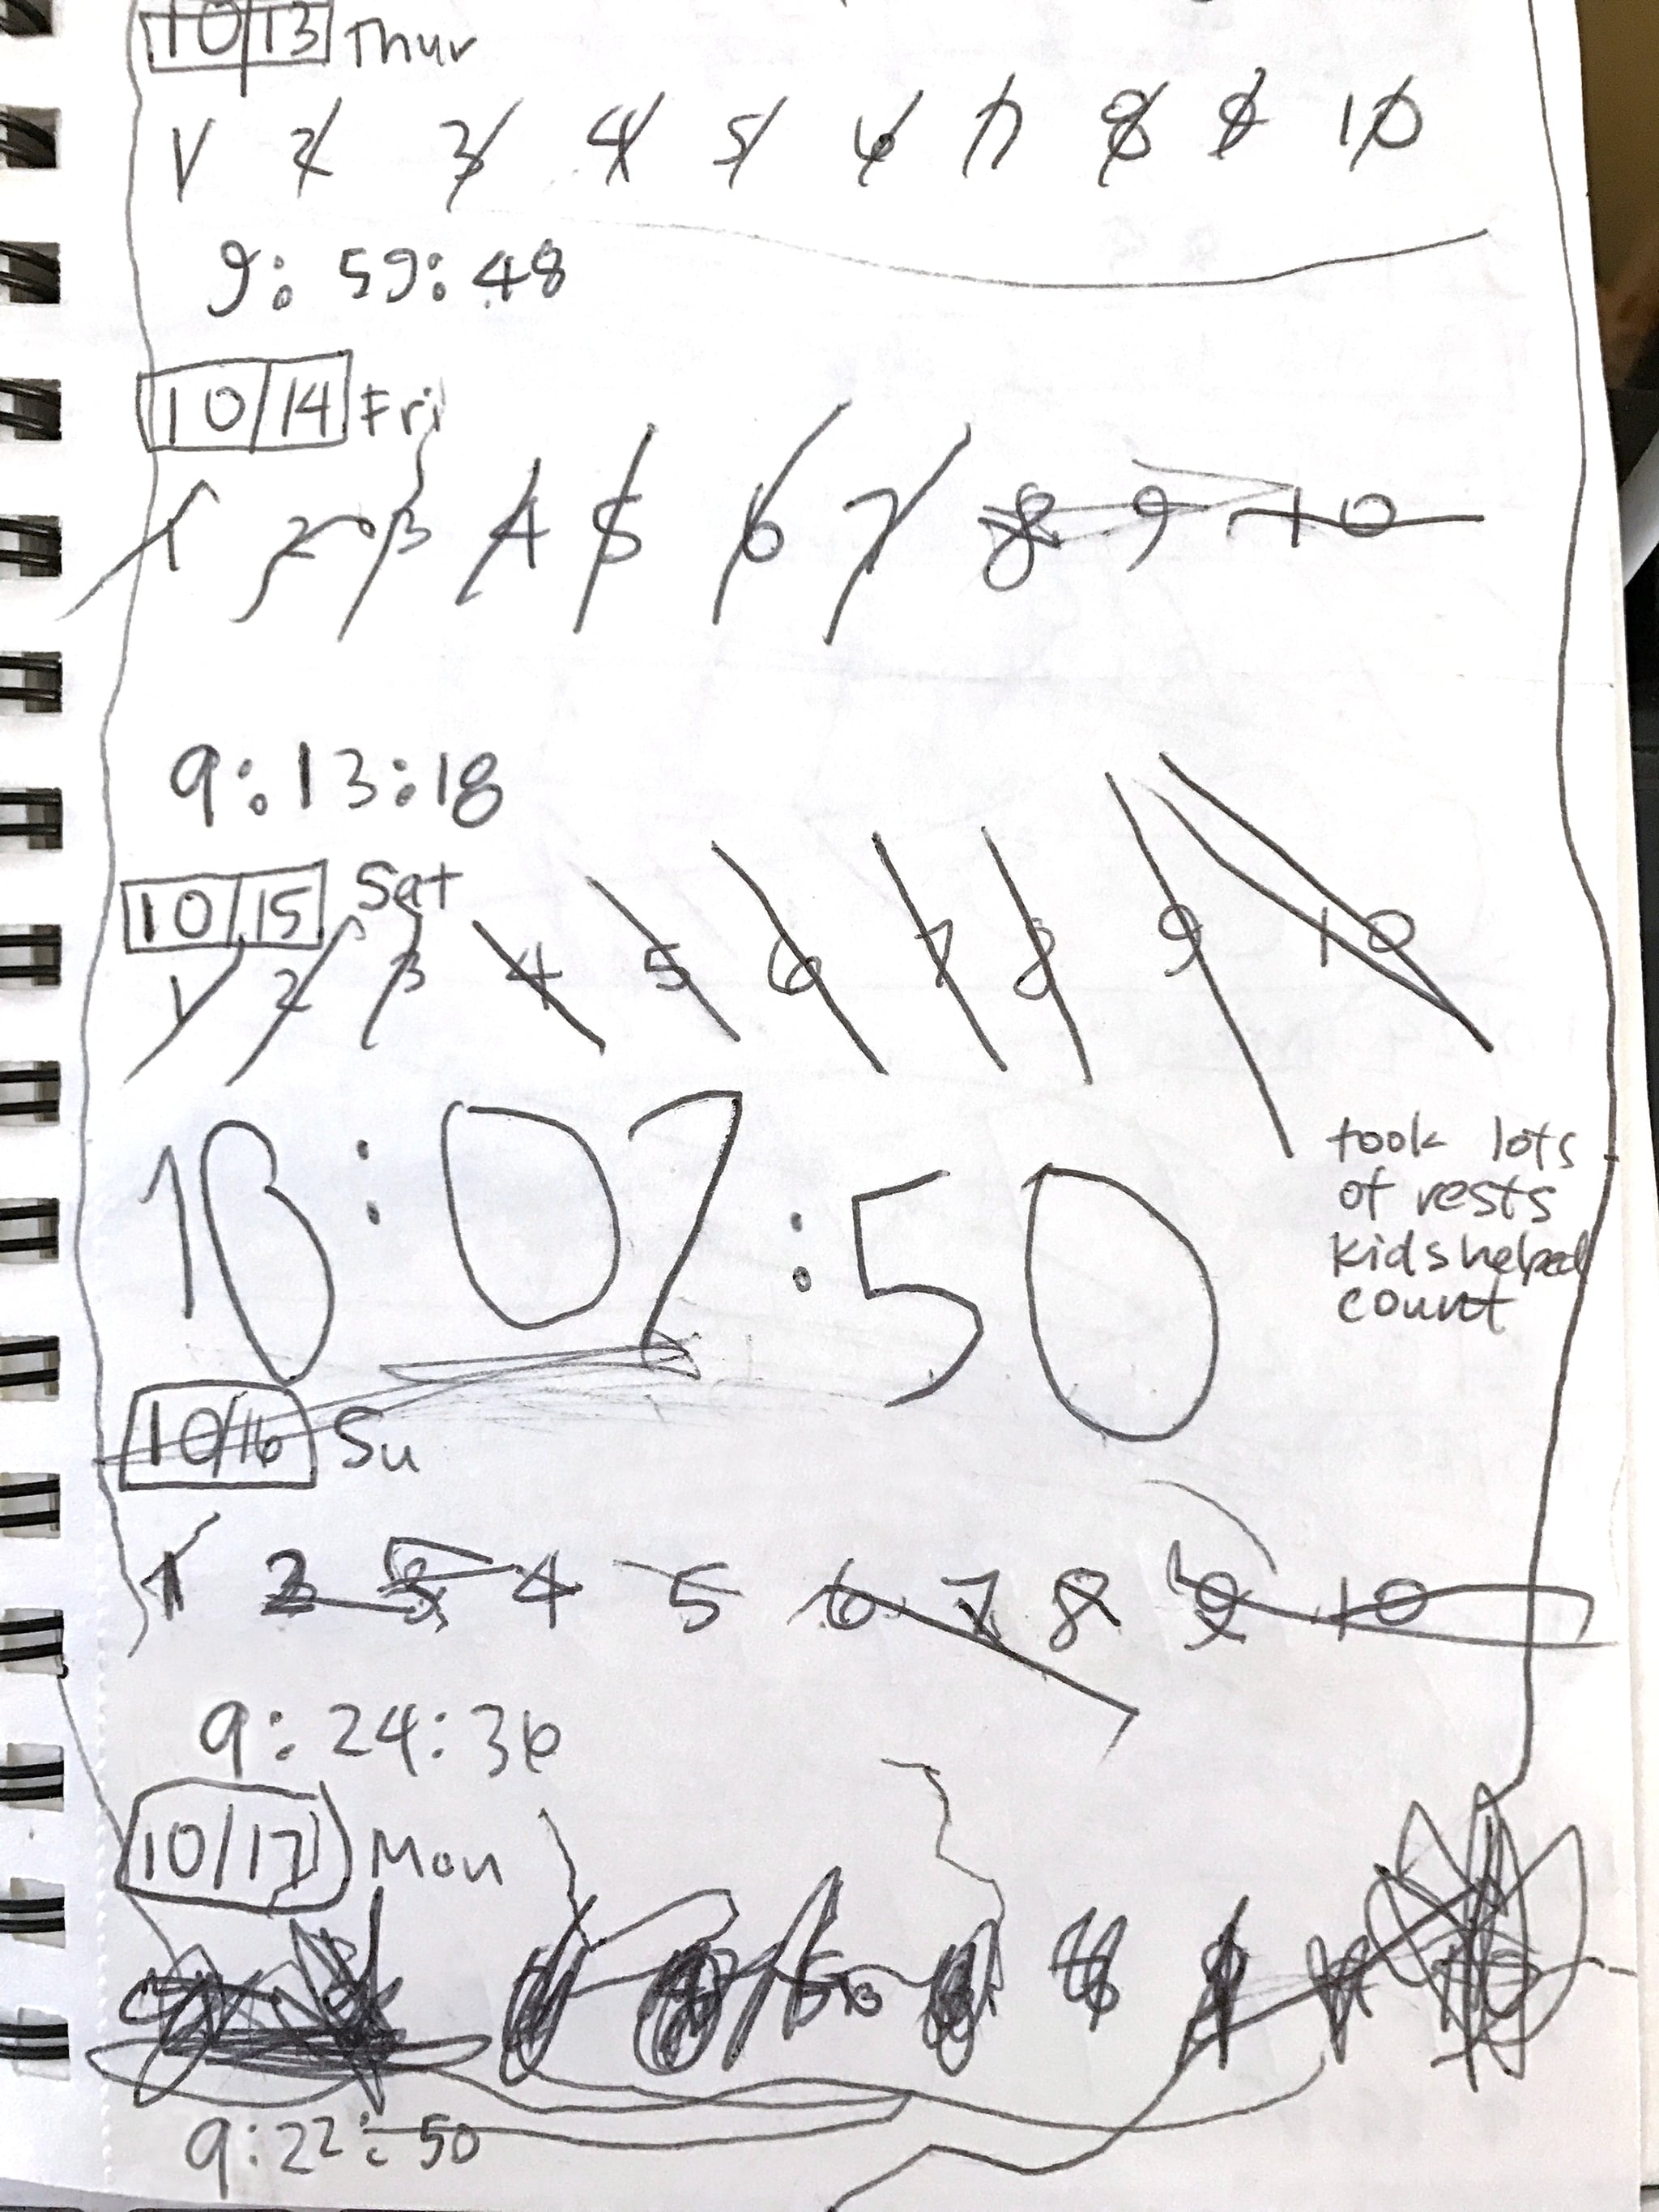 10/13 Thur
1 2 3 4 5 6 7 8 9 10
9:59:48
10/14 Fri
1 2 3 4 5 6 7 8 9 10
9:13:18
10/15 Sat
1 2 3 4 5 6 7 8 9 10
10:07:50
took lots
of rests
kids helped
count
10/16 Su
1 2 3 4 5 6 7 8 9 10
9:24:36
10/17 Mon
9:22:50